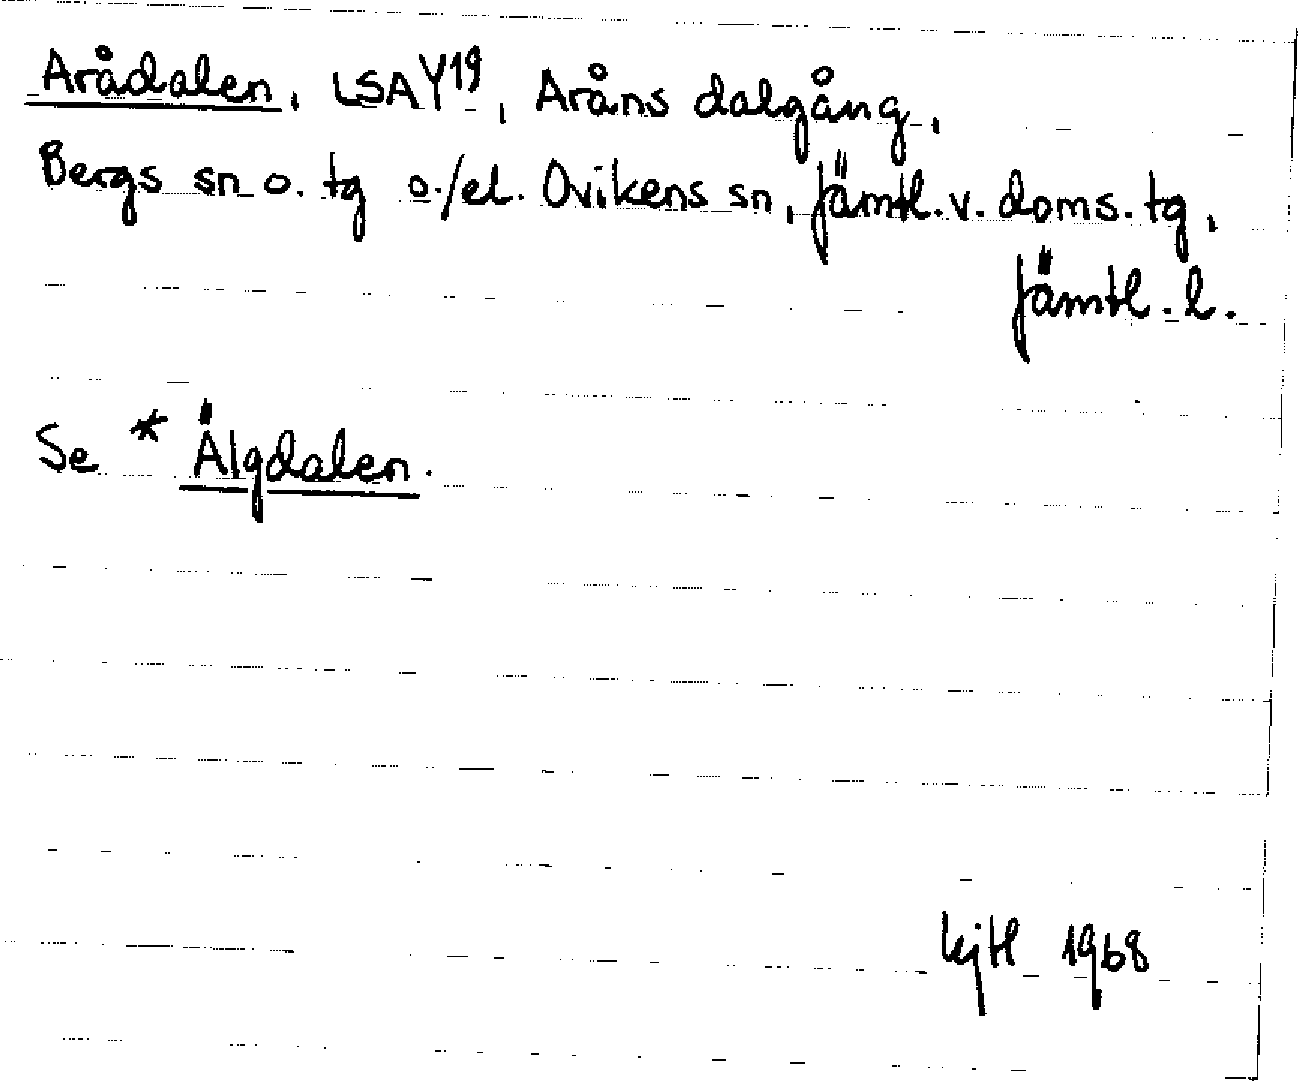 Arådalen, LSA Y19, Aråns dalgång,
Bergs sn o. tg o./el. Ovikens sn, Jämtl. v. doms. tg,
Jämtl. l.
Se * Älgdalen.
1968